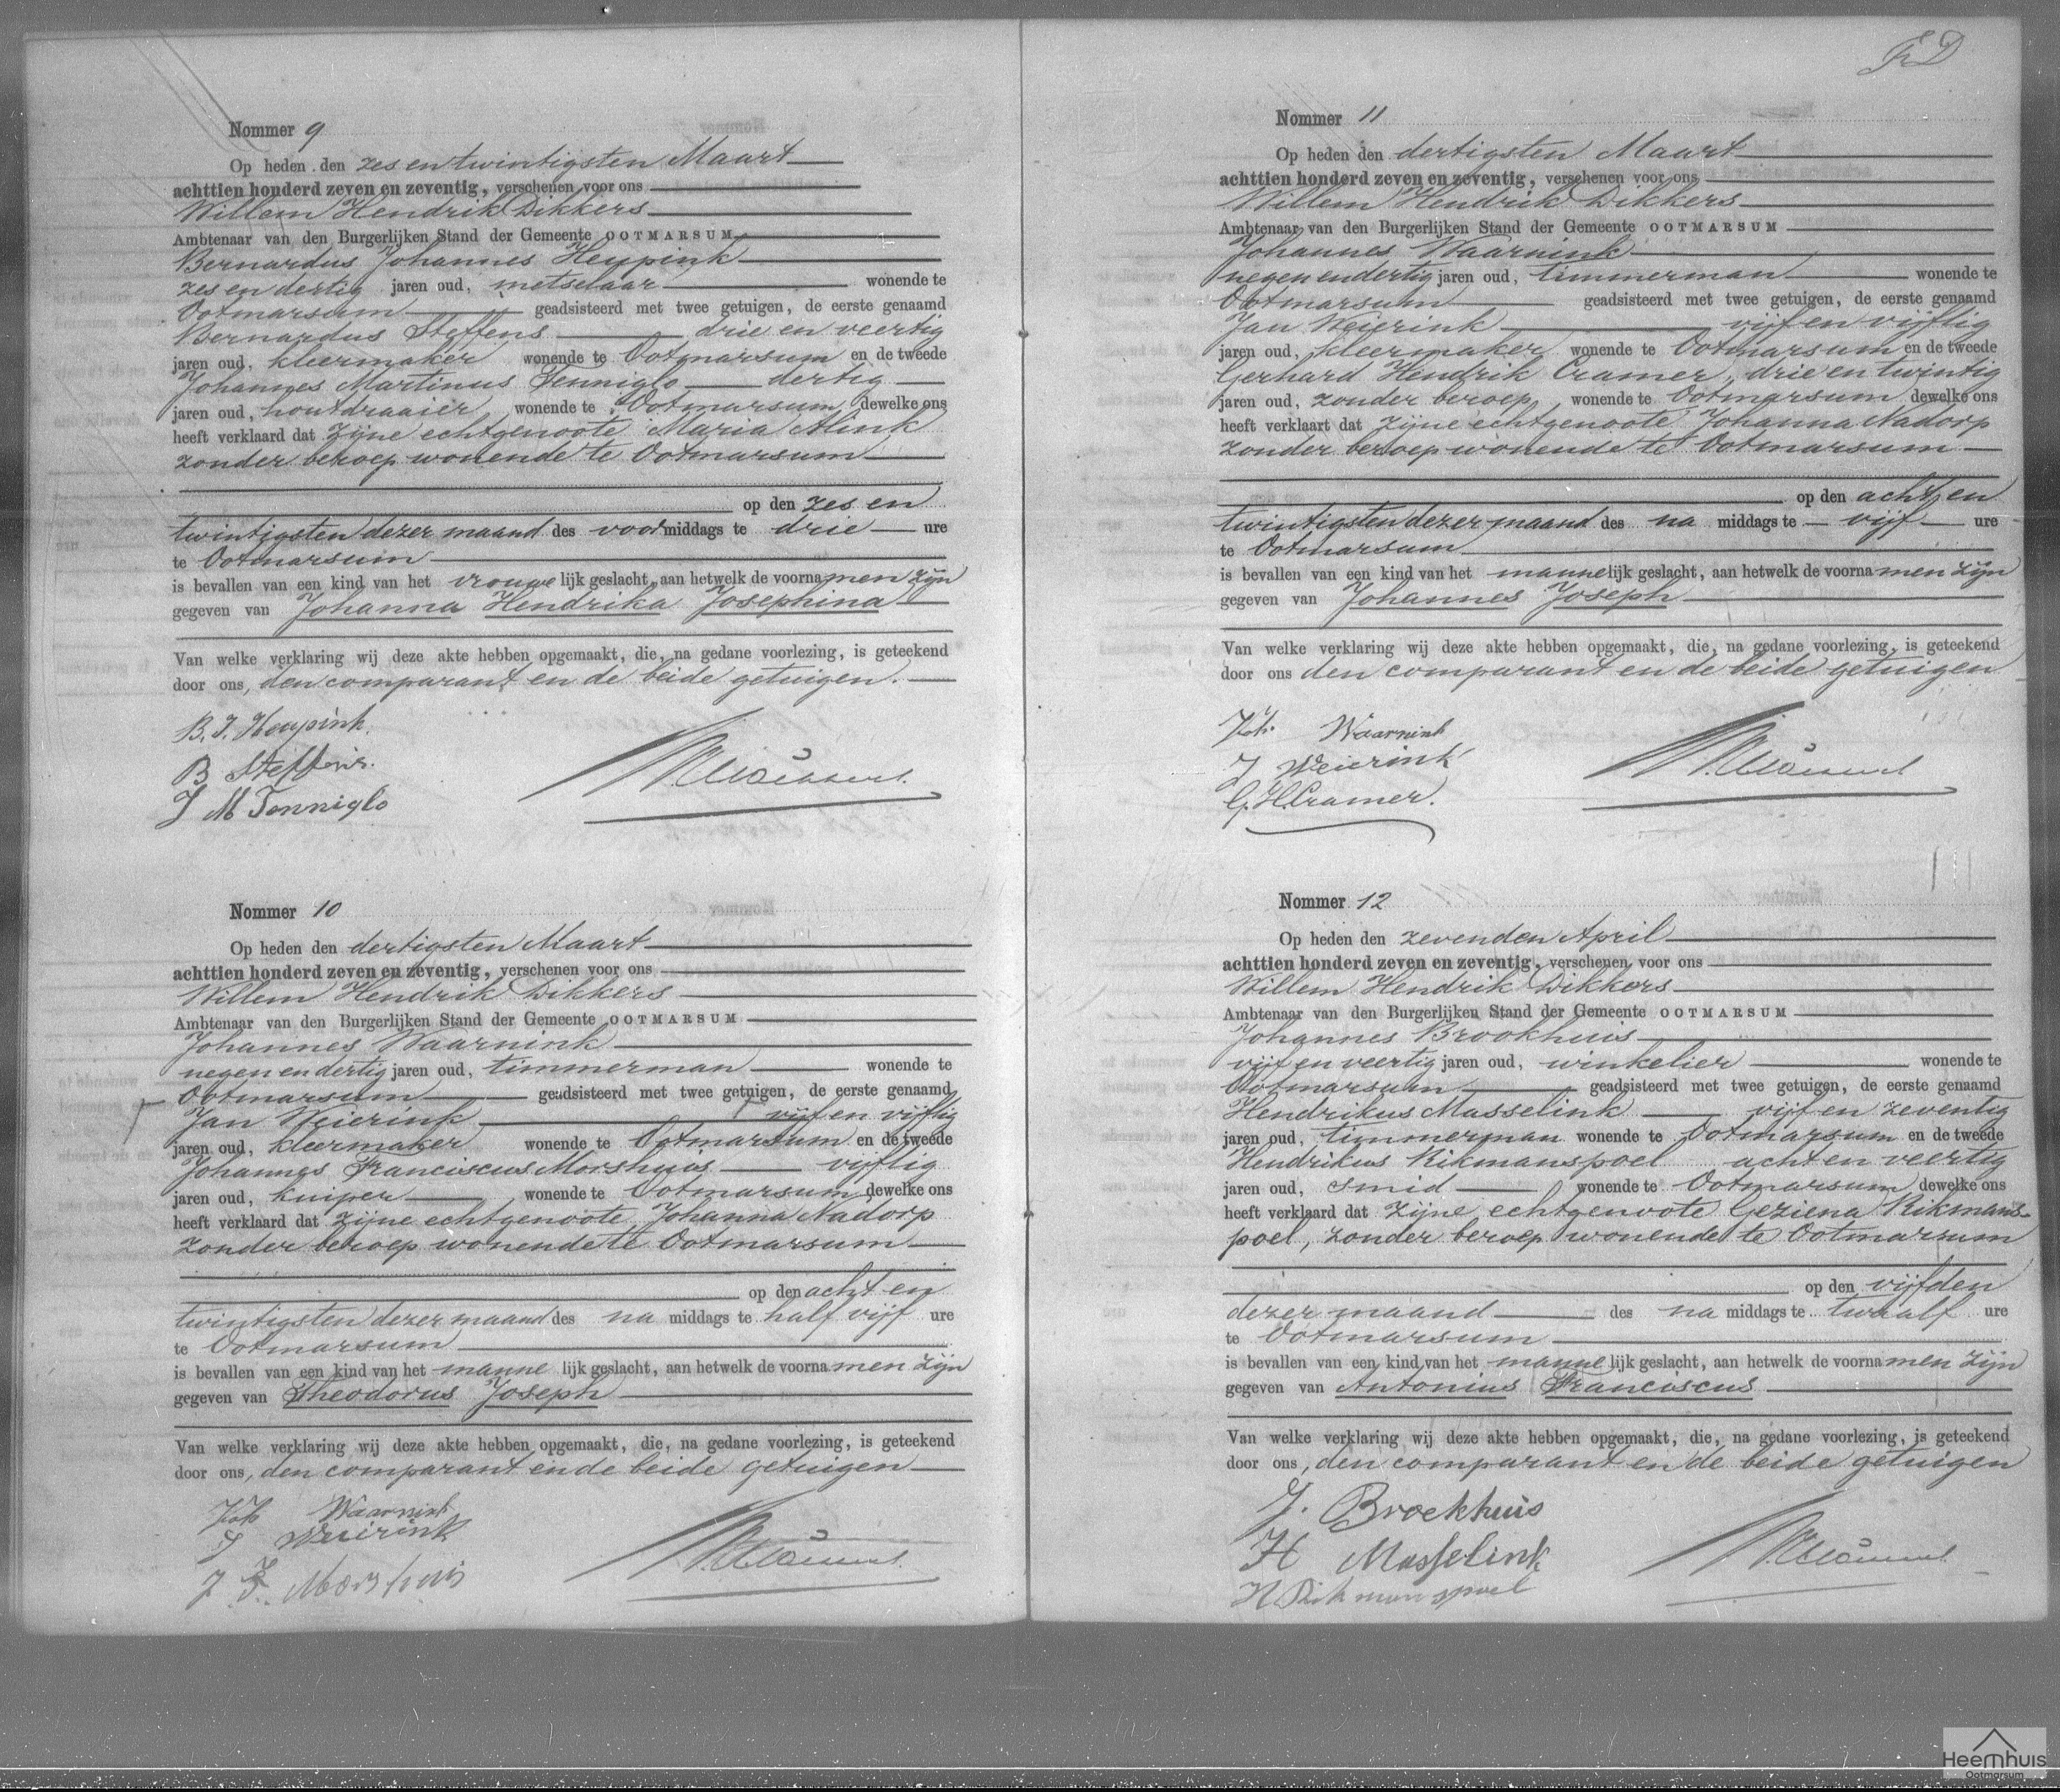 Nommer 9
Op heden den zes en twintigsten Maart
achttien honderd zeven en zeventig, verschenen voor ons
Willem Hendrik Dikkers
Ambtenaar van den Burgerlijken Stand der Gemeente OOTMARSUM
Bernardus Johannes Heupink
zes en dertig jaren oud, metselaar wonende te
Ootmarsum geadsisteerd met twee getuigen, de eerste genaamd
Bernardus Steffens drie en veertig
jaren oud, kleermaker wonende te Ootmarsum en de tweede
Johannes Martinus Tenniglo dertig
jaren oud, houtdraaier wonende te Ootmarsum dewelke ons
heeft verklaard dat zijne echtgenoote Maria Alink
zonder beroep wonende te Ootmarsum
op den zes en
twintigsten dezer maand des voormiddags te drie ure
te Ootmarsum
is bevallen van een kind van het vrouwelijk geslacht, aan hetwelk de voornamen zijn
gegeven van Johanna Hendrika Josephina
Van welke verklaring wij deze akte hebben opgemaakt, die, na gedane voorlezing, is geteekend
door ons, den comparant en de beide getuigen.
B. J. Heupink.
B Steffens.
J M Tenniglo
Nommer 10
Op heden den dertigsten Maart
achttien honderd zeven en zeventig, verschenen voor ons
Willem Hendrik Dikkers
Ambtenaar van den Burgerlijken Stand der Gemeente OOTMARSUM
Johannes Waarnink
negen en dertig jaren oud, timmerman wonende te
Ootmarsum geadsisteerd met twee getuigen, de eerste genaamd
Jan Weierink vijf en vijftig
jaren oud, kleermaker wonende te Ootmarsum en de tweede
Johannes Franciscus Morshuis vijftig
jaren oud, kuiper wonende te Ootmarsum dewelke ons
heeft verklaard dat zijne echtgenoote Johanna Nadorp
zonder beroep wonende te Ootmarsum
op den acht en
twintigsten dezer maand des na middags te half vijf ure
te Ootmarsum
is bevallen van een kind van het mannelijk geslacht, aan hetwelk de voornamen zijn
gegeven van Theodorus Joseph
Van welke verklaring wij deze akte hebben opgemaakt, die, na gedane voorlezing, is geteekend
door ons, den comparant en de beide getuigen
Joh Waarnink
J Weierink
J F. Morshuis
Nommer 11
Op heden den dertigsten Maart
achttien honderd zeven en zeventig, verschenen voor ons
Willem Hendrik Dikkers
Ambtenaar van den Burgerlijken Stand der Gemeente OOTMARSUM
Johannes Waarnink
negen en dertig jaren oud, timmerman wonende te
Ootmarsum geadsisteerd met twee getuigen, de eerste genaamd
Jan Weierink vijf en vijftig
jaren oud, kleermaker wonende te Ootmarsum en de tweede
Gerhard Hendrik Cramer, drie en twintig
jaren oud, zonder beroep wonende te Ootmarsum dewelke ons
heeft verklaart dat zijne echtgenoote Johanna Nadorp
zonder beroep wonende te Ootmarsum
op den acht en
twintigsten dezer maand des na middags te vijf ure
te Ootmarsum
is bevallen van een kind van het mannelijk geslacht, aan hetwelk de voornamen zijn
gegeven van Johannes Joseph
Van welke verklaring wij deze akte hebben opgemaakt, die, na gedane voorlezing, is geteekend
door ons den comparant en de beide getuigen
Joh. Waarnink
J Weierink
G. H. Cramer.
Nommer 12
Op heden den zevenden April
achttien honderd zeven en zeventig, verschenen voor ons
Willem Hendrik Dikkers
Ambtenaar van den Burgerlijken Stand der Gemeente OOTMARSUM
Johannes Brookhuis
vijf en veertig jaren oud, winkelier wonende te
Ootmarsum geadsisteerd met twee getuigen, de eerste genaamd
Hendrikus Masselink vijf en zeventig
jaren oud, timmerman wonende te Ootmarsum en de tweede
Hendrikus Rikmanspoel acht en veertig
jaren oud, smid wonende te Ootmarsum dewelke ons
heeft verklaard dat zijne echtgenoote Geziena Rikmans-
poel, zonder beroep wonende te Ootmarsum
op den vijfden
dezer maand des na middags te twaalf ure
te Ootmarsum
is bevallen van een kind van het mannelijk geslacht, aan hetwelk de voornamen zijn
gegeven van Antonius Franciscus
Van welke verklaring wij deze akte hebben opgemaakt, die, na gedane voorlezing, is geteekend
door ons, den comparant en de beide getuigen
J. Broekhuis
H Masselink
H Rikmanspoel
Heemhuis
Ootmarsum